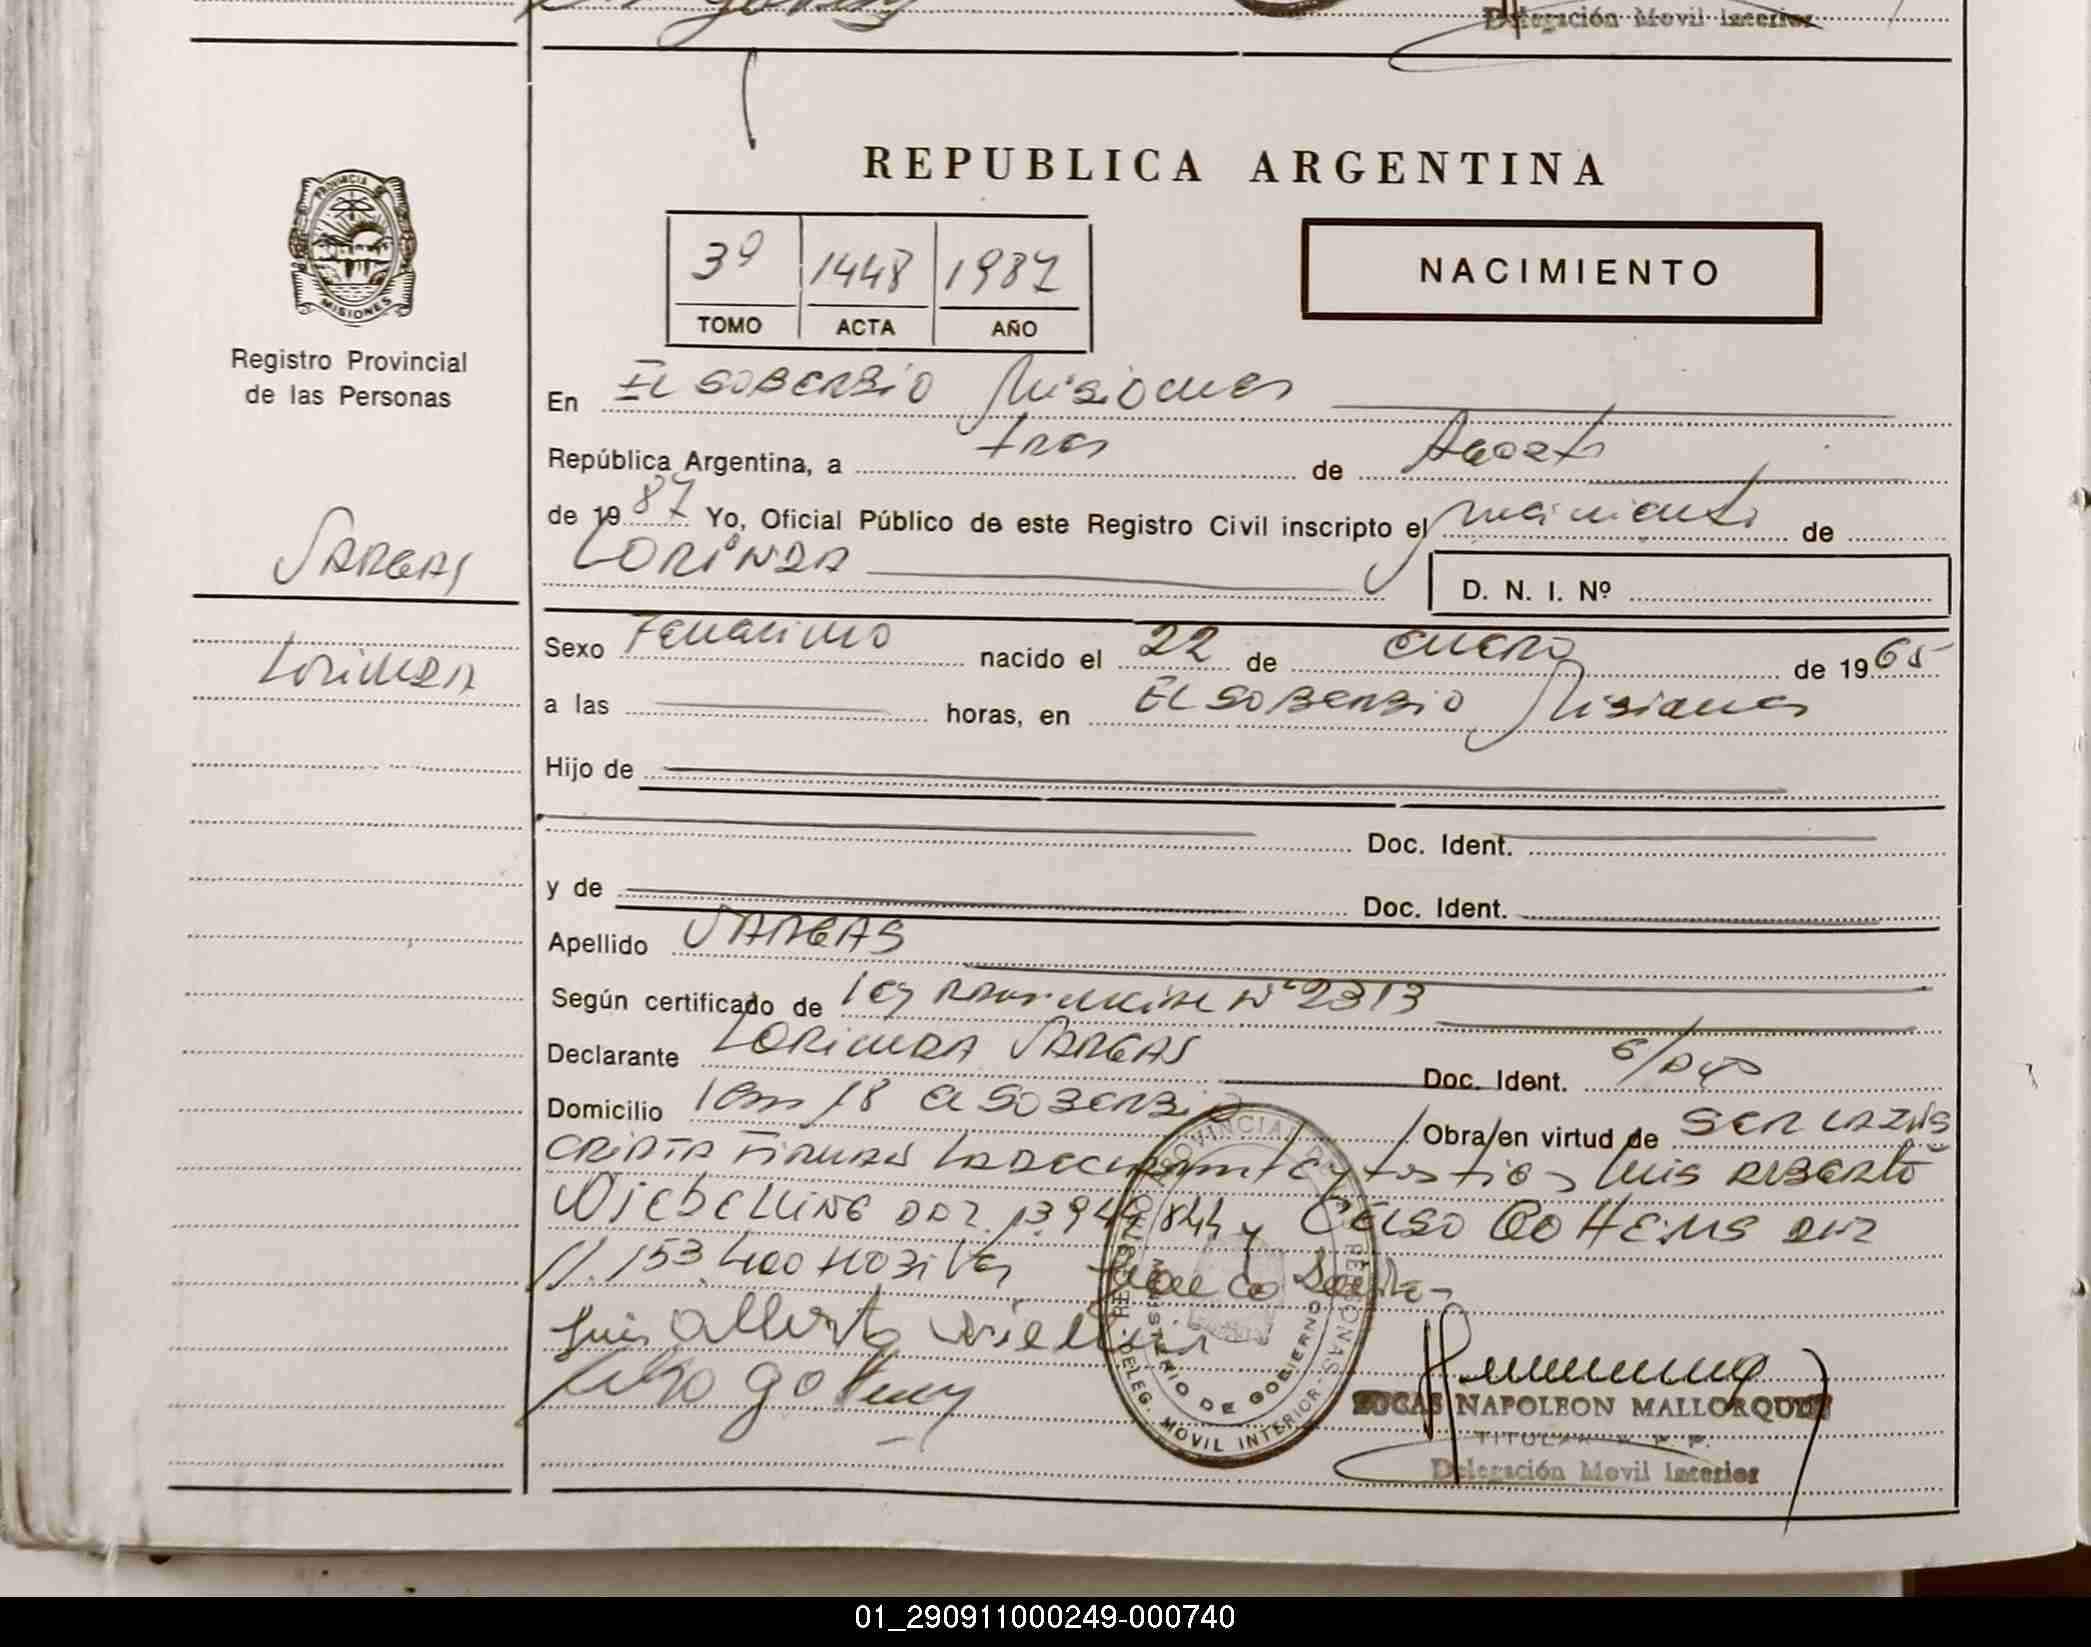 Delegación Movil Interior
REPUBLICA ARGENTINA
PROVINCIA DE
MISIONES
3º 1448 1987
TOMO ACTA AÑO
NACIMIENTO
Registro Provincial
de las Personas
En EL SOBERBIO Misiones
República Argentina, a tres de Agosto
de 1987 Yo, Oficial Público de este Registro Civil inscripto el nacimiento de
VARGAS
LORINDA
D. N. I. Nº
Lorinda
Sexo Femenino nacido el 22 de enero de 1965
a las horas, en EL SOBERBIO Misiones
Hijo de
Doc. Ident.
y de Doc. Ident.
Apellido VARGAS
Según certificado de ley provincial Nº 2313
Declarante LORINDA VARGAS Doc. Ident.
Domicilio km 18 el SOBERBIO Obra/en virtud de SER LA INS
CRIPTA FIRMAN la declarante y testigos Luis ALBERTO
DNI 13.944.844 y CELSO DNI
Luis Alberto
LUCAS NAPOLEON MALLORQUIN
TITULAR R. P. P.
Delegación Movil Interior
REGISTRO PROVINCIAL DE LAS PERSONAS
MINISTERIO DE GOBIERNO
DELEG. MOVIL INTERIOR
01_290911000249-000740